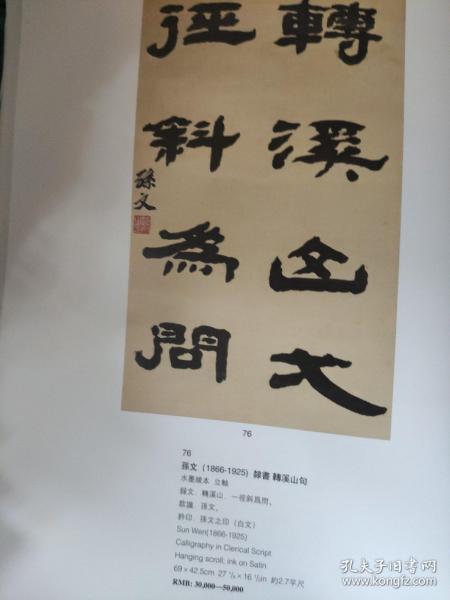 轉溪
徑斜為問
孫文
76
76
孫文 (1866-1925) 隸書 轉溪山句
水墨綾本 立軸
錄文：轉溪山，一徑斜爲問。
款識：孫文。
鈐印：孫文之印（白文）
Sun Wen(1866-1925)
Calligraphy in Clerical Script
Hanging scroll; ink on Satin
69×42.5cm 27 1/8×16 in 約2.7平尺
RMB: 30,000—50,000
孔夫子旧书网
kongfz.com